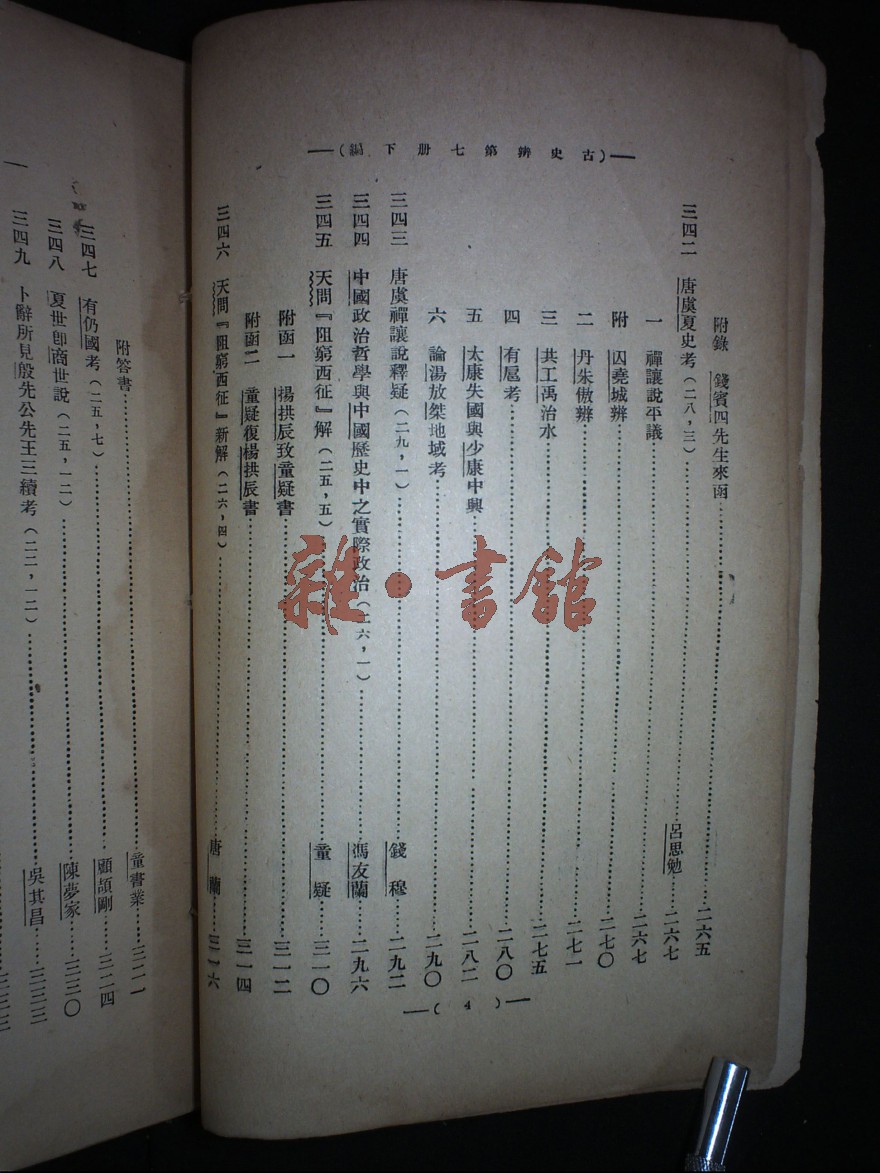 古史辨第七册下編
附錄　錢賓四先生來函……二六五
三四二　唐虞夏史考（二八，三）……呂思勉……二六七
一　禪讓說平議……二六七
附　囚堯城辨……二七〇
二　丹朱傲辨……二七一
三　共工禹治水……二七五
四　有扈考……二八〇
五　太康失國與少康中興……二八二
六　論湯放桀地域考……二九〇
三四三　唐虞禪讓說釋疑（二九，一）……錢　穆……二九二
三四四　中國政治哲學與中國歷史中之實際政治（二六，一）……馮友蘭……二九六
三四五　天問『阻窮西征』解（二五，五）……童　疑……三一〇
附函一　楊拱辰致童疑書……三一二
附函二　童疑復楊拱辰書……三一四
三四六　天問『阻窮西征』新解（二六，四）……唐　蘭……三一六
（4）
附答書……童書業……三二一
三四七　有仍國考（二五，七）……顧頡剛……三二四
三四八　夏世卽商世說（二五，一二）……陳夢家……三三〇
三四九　卜辭所見殷先公先王三續考（二二，一二）……吳其昌……三三三
雜·書館